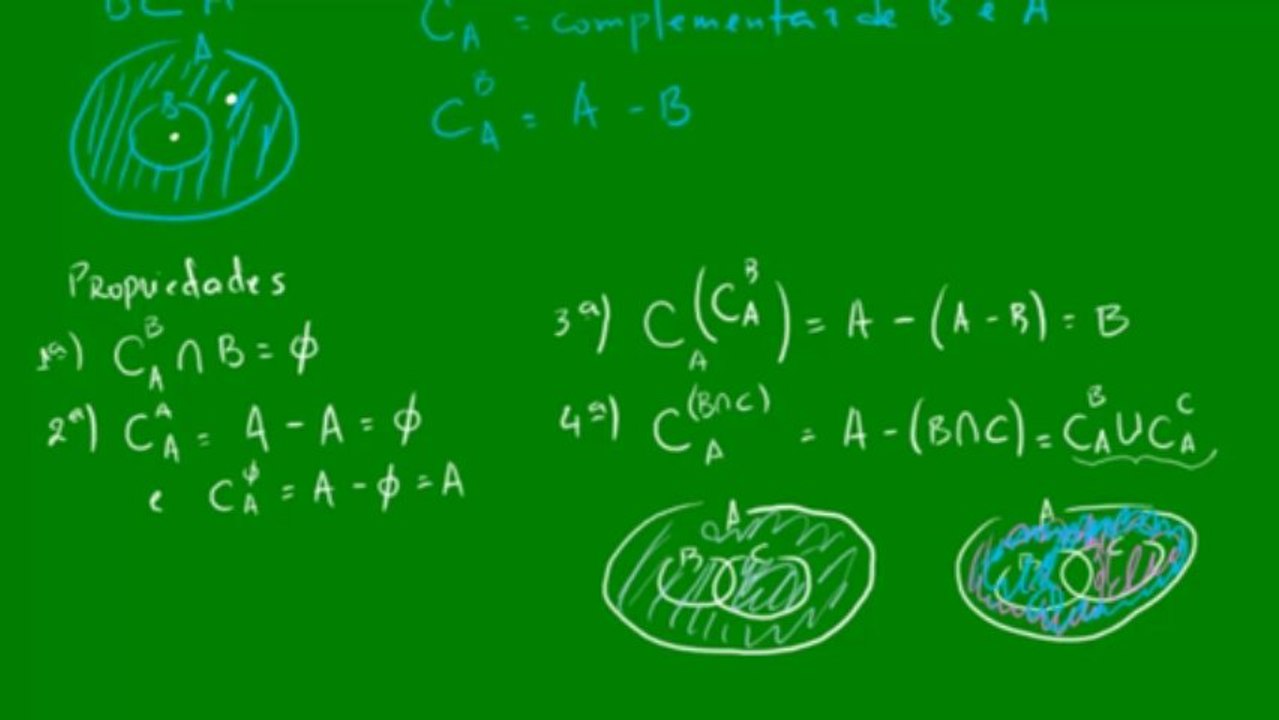 B ⊂ A
C_A = complementar de B e A
A
B
C_A^B = A - B
Propriedades
1ª) C_A^B ∩ B = ϕ
2ª) C_A^A = A - A = ϕ
e C_A^ϕ = A - ϕ = A
3ª) C_A(C_A^B) = A - (A - B) = B
4ª) C_A^(B∩C) = A - (B∩C) = C_A^B ∪ C_A^C
A
B C
A
B C